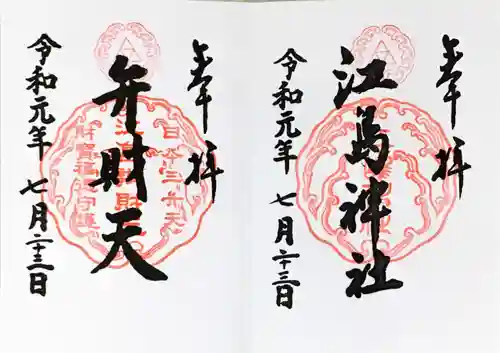 奉拝
江島神社
令和元年七月二十三日
奉拝
弁財天
日本三弁天
令和元年七月二十三日